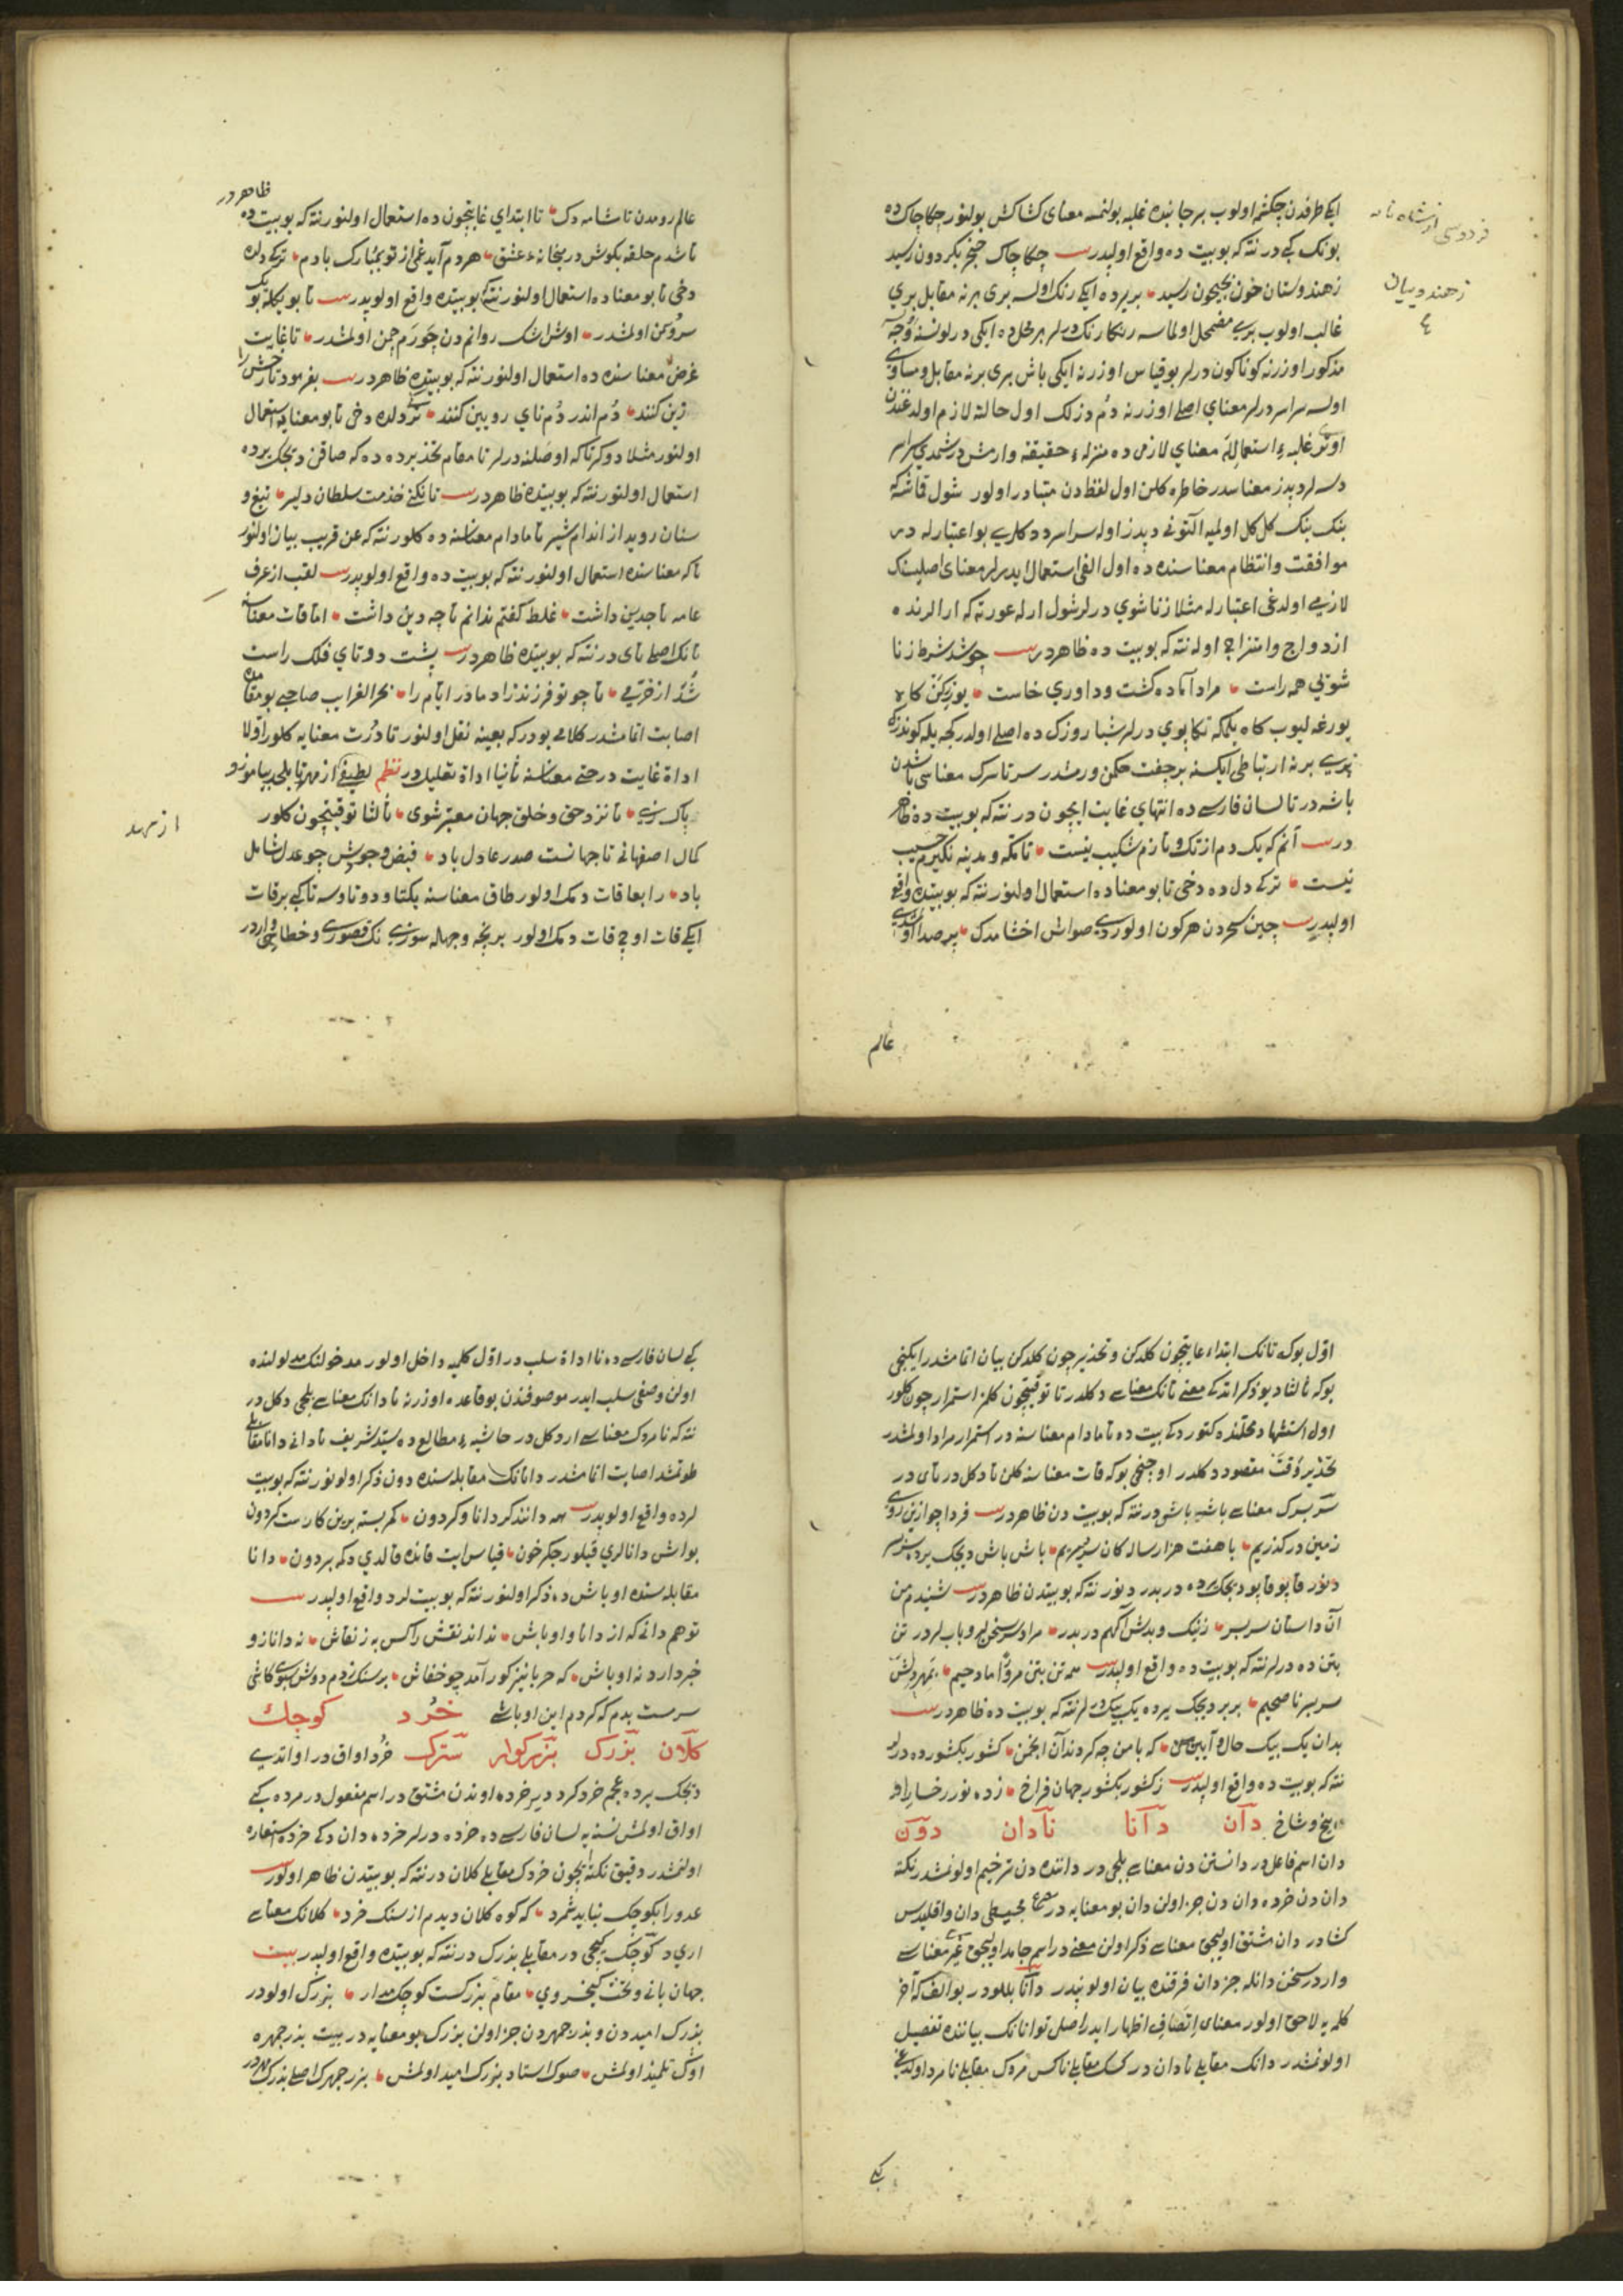 ایکی طرفدن چکشمه اولوب هر جانبده غلبه بولنمسه معنای کشاکش بولنور چکاچاک ده
بونک کبی در نته که بو بیت ده واقع اولیدر بیت چکاچاک خنجر بکردون رسید
زهندوستان خون بجیحون رسید بریرده ایکی رنک اولسه بری برنه مقابل بری
غالب اولوب بری مضمحل اولماسه رنکارنک دیرلر هر محل ده ایکی درلو نسنه وجه
مذکور اوزرنه کوناکون درلر بو قیاس اوزرنه ایکی باش بری برنه مقابل و مساوی
اولسه سراسر درلر معنای اصلی اوزرنه دم دزلک اول حالته لازم اولدغندن
اوتری غلبه استعماله معنای لازمی ده منزله حقیقته وارمش در شمدی سراسر
دسه لر دپدز معناسدر خاطره کلن اول لفظدن متبادر اولور شول قاشه که
بنک بنک کل کل اولمیه آلتونی دپدز اوله سراسر ددکلری بو اعتبارله در
موافقت و انتظام معناسنده ده اول الفی استعمال ایدرلر معنای اصلینک
لازمی اولدغی اعتبارله مثلا زناشوی درلر شول ار له عورته که ارالرنده
ازدواج و امتزاج اوله نته که بو بیت ده ظاهر در بیت چو شد شرط زنا
شوئی همه راست مراد آماده کشت و داوری خاست
یورغه لیوب کاه یلمکه تکاپوی درلر شباروزک ده اصلی اولدر کجه یله کوندزک
بری برنه ارتباطی ایکسنه بر جفت حکمن ورمشدر سر تا سرک معناسی باشدن
باشه در تا لسان فارسی ده انتهای غایت ایچون در نته که بو بیت ده ظاهر
در بیت آنم که یک دم از تک و تازم شکیب نیست تا مکه و مدینه نکیرم حسیب
نیست ترکی دل ده دخی تا بو معنا ده استعمال اولنور نته که بو بیتده واقع
اولیدر بیت چین سحردن هر کون اولور دی صواش اخشامدک بر صدا اولدی
فردوسی از شاه نامه
زهندوستان
عالم
عالم رومدن تا شامه دک تا ابتدای غایتچون ده استعمال اولنور نته که بو بیت ده
ظاهر در
تا شدم حلقه بکوش در میخانه عشق هر دم آید غمی از نو بمبارک بادم ترکی دلده
دخی تا بو معنا ده استعمال اولنور نته که بو بیتده واقع اولوپدر بیت تا بویکله بو یک
سرو کن اولمشدر اوش اشک روانم دن چو رم چمن اولمشدر تا غایت
غرض معناسنده ده استعمال اولنور نته که بو بیتده ظاهر در بیت بفرمود تا رخش را
زین کنند دم اندر دم نای رویین کنند ترک دلده دخی تا بو معنایه استعمال
اولنور مثلا دوکر تا که اوصلنه درلر تا مقام تحذیرده ده که صاقن دیجک یرده
استعمال اولنور نته که بو بیتده ظاهر در بیت تا نکنی خذمت سلطان دلیر تیغ و
سنان روید از اندام شیر تا مادام معناسنه ده کلور نته که عن قریب بیان اولنور
تا که معناسنده استعمال اولنور نته که بو بیت ده واقع اولوپدر بیت لقب از عرف
عامه تاجدین داشت غلط کفتم ندانم تا چه دین داشت اما قات معناسنه
تانک اصلی تای در نته که بو بیتده ظاهر در بیت پشت دوتای فلک راست
شد از خرمی تا چو تو فرزند زاد مادر ایام را بحر الغرایب صاحبی بو مقامده
اصابت اتمامشدر کلامی بودر که بعینه نقل اولنور تا درت معنایه کلور اولا
اداة غایت در حتی معناسنه ثانیا اداة تعلیل در نظم لطیفی از مهر تا بلجی بیاموز و
پاک زی تا نزد حق و خلق جهان معتبر شوی ثالثا توقیتچون کلور
کمال اصفهانی تا جهانست صدر عادل باد فیض جودش چو عدل شامل
باد رابعا قات دمک اولور طاق معناسنه یکتا و دوتا و سه تا کبی بر قات
ایکی قات اوچ قات دمک اولور بر نچه وجهله سوزی نک قصوری و خطاسی وار در
از مهر
اول بو که تانک ابتداء غایتچون کلدکن و تحذیرچون کلدکن بیان اتمامشدر ایکنجی
بو که ثالثا دیو ذکر اتدکی معنی تانک معناسی دکلدر تا توقیتچون کلمز استمرارچون کلور
اول استشهاد محلنده کتوردکی بیت ده تا مادام معناسنه در استمرار مراد اولمشدر
تحذیر وقت مقصود دکلدر اوچنجی بو که قات معناسنه کلن تا دکل در تای در
سر بسرک معناسی باشی باشی در نته که بو بیت دن ظاهر در بیت فردا چو ازین روی
زمین درکذریم با هفت هزار سالکان سربسریم باش باش دیجک یرده سر بسر
دنور قاپو قاپو دیجک یرده در بدر دنور نته که بو بیتدن ظاهر در بیت شنیدم من
آن داستان سربسر ز نیک و بدش آکهم در بدر مراد سر سخن لر و باب لر در تن
بتن ده درلر نته که بو بیت ده واقع اولپدر بیت همه تن بتن مروا اماد حیم بمهر دلش
سربسر ناصحیم بربر دیجک یرده یک بیک درلر نته که بو بیت ده ظاهر در بیت
بدان یک بیک حال و آیین من که با من چه کردند آن انجمن کشور بکشور ده درلر
نته که بو بیت ده واقع اولپدر بیت ز کشور بکشور جهان فراخ زده نور رخسار او
بیخ و شاخ دان دانا نادان دون
دان اسم فاعل در دانستن دن معناسی بلیجی در داننده دن ترخیم اولونمشدر نکته
دان دن خرده دان دن جزء اولن دان بو معنایه در مصرع مجسطی دان و اقلیدس
کشا در دان مشتق اولیجق معناسی ذکر اولن معنی در اسم جامد اولیجق غیری معناسی
وار در سخن دانله جزدان فرقنده بیان اولونپدر دانا بللودر بو الف که آخر
کلمه یه لاحق اولور معنای اتصاف اظهار ایدر اصل توانانک بیاننده تفصیل
اولونمشدر دانک مقابلی نادان در کسک مقابلی ناکس مردک مقابلی نامرد اولدغی
کبی
کبی لسان فارسی ده نا اداة سلب در اول کلمیه داخل اولور مدخولنک مدلولنده
اولن وصفی سلب ایدر موصوفندن بو قاعده اوزرنه نادانک معناسی بلیجی دکل در
نته که نامردک معناسی ار دکل در حاشیه مطالع ده سید شریف نادانی دانا مقابلی
طوتمشد اصابت اتمامشدر دانانک مقابله سنده دون ذکر اولونور نته که بو بیت
لرده واقع اولوپدر بیت همه دانند کر دانا وکر دون کمر بسته برین کارست کردون
بو ایش دانالری قیلور جکر خون قیاس ایت قانده قالدی دکمه بر دون دانا
مقابله سنده اوباش ده ذکر اولنور نته که بو بیت لرد واقع اولپدر بیت
تو هم دانی که از دانا و اوباش نداند نقش را کس به ز نقاش نه دانا زو
خبر دارد نه اوباش که حربا نیز کور آمد چو خفاش بر سنک زدم دوش سبوی کاشی
سرمست بدم که کردم این اوباشی خرد کوچک
کلان بزرک بزرکوار سترک خرد اواق در اواتدی
دیجک یرده عجم خرد کرد دیر خرده اوندن مشتق در اسم مفعول در مرده کبی
اواق اولمش نسنه یه لسان فارسی ده خرده درلر خرده دان دکی خرده استعاره
اولنمشدر دقیق نکته ایچون خردک مقابلی کلان در نته که بو بیتدن ظاهر اولور بیت
عدو را بکوچک نباید شمرد که کوه کلان دیدم از سنک خرد کلانک معناسی
اری در کوچک کیجی در مقابلی بزرک در نته که بو بیتده واقع اولپدر بیت
جهان بانی و تخت کیخسروی مقام بزرکست کوچک مدار بزرک اولو در
بزرک امیددن و بزرجمهردن جزء اولن بزرک بو معنایه در بیت بزرجمهره
اوک تلمیذ اولمش صوک استاد بزرک امید اولمش بزرجمهرک اصلی بزرک مهر در